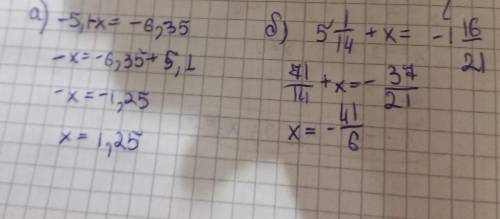 а) -5,1-x = -6,35
-x = -6,35 + 5,1
-x = -1,25
x = 1,25
б) 5 1/14 + x = -1 16/21
71/14 + x = - 37/21
x = - 41/6